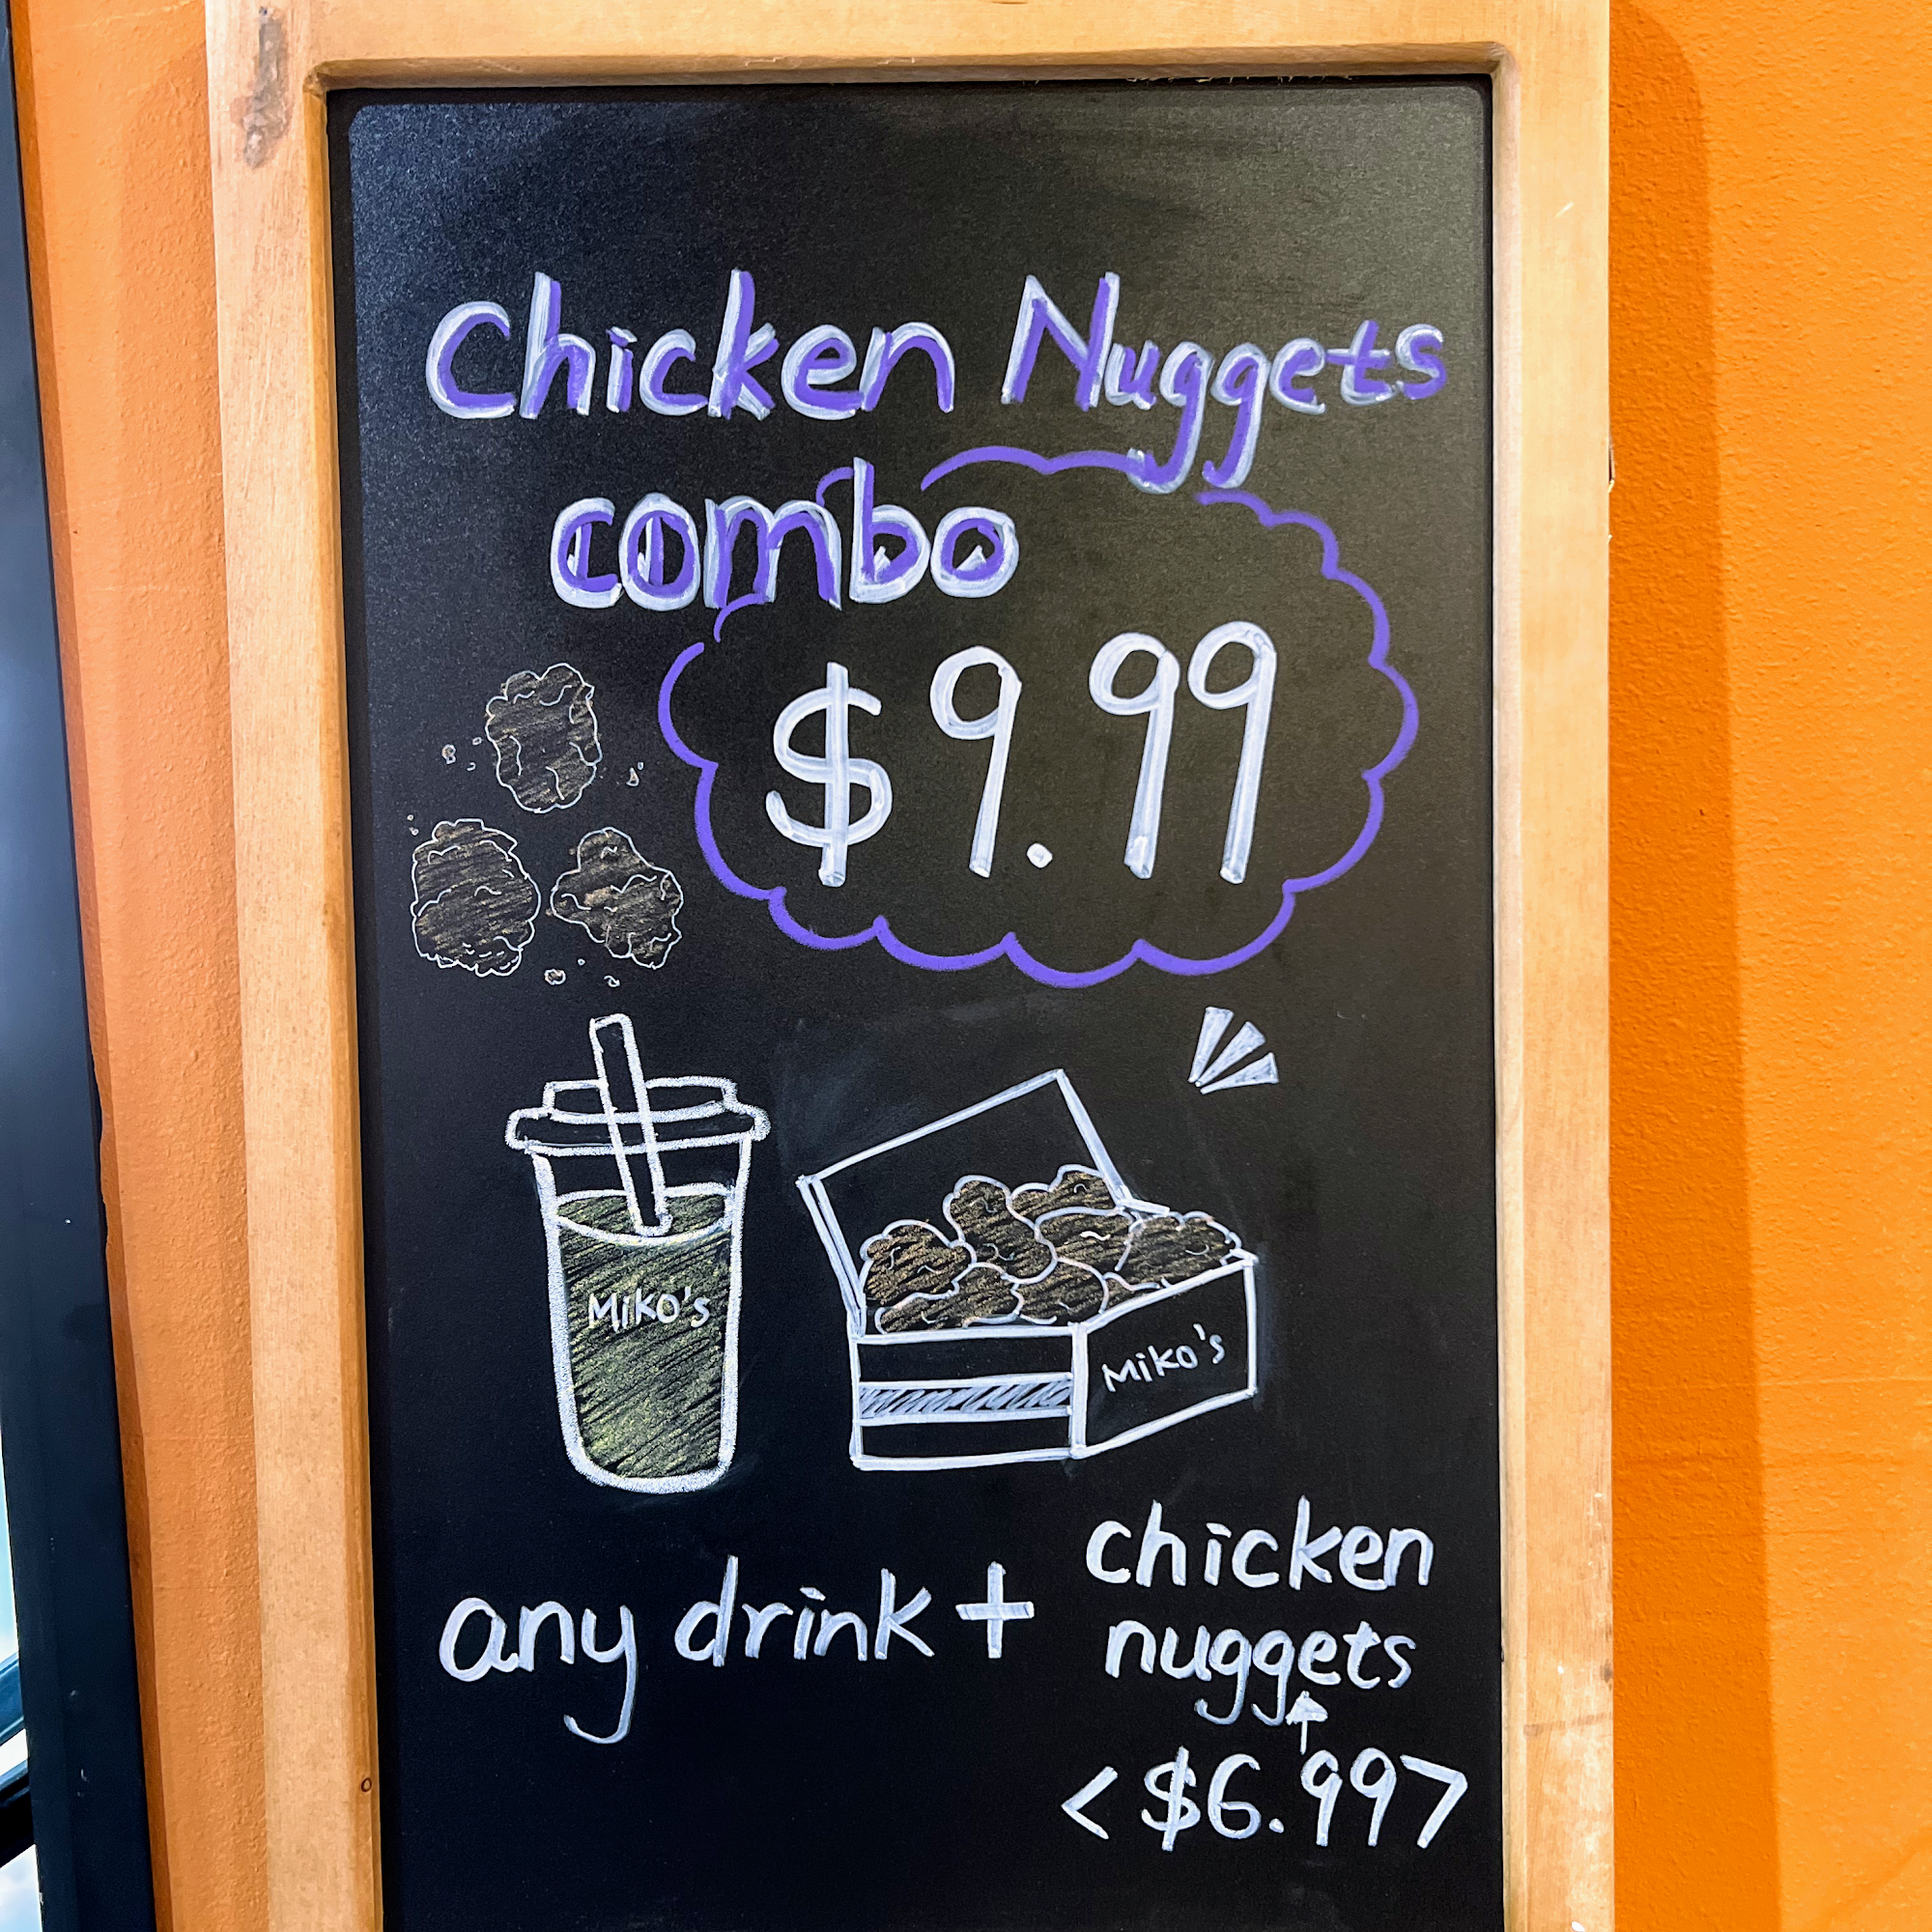 Chicken Nuggets
combo
$9.99
Miko's
Miko's
any drink + chicken
nuggets
<$6.99>